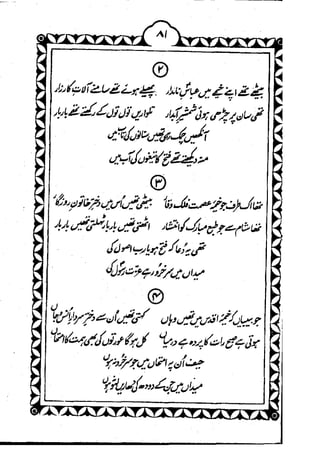 ۸۱
۲
بیٹھے تھے اپنے خیمے میں عباسِ نامدار پھیلے ہوئے تھے سامنے آلاتِ کارزار
تھی سان پر چڑھی ہوئی شمشیرِ آبدار تلواریں تول تول کے رکھتے تھے بار بار
آنکھیں چمک رہی تھیں ستاروں کی آب میں
منہ دیکھتے تھے فتح کا تیغوں کی آب میں
۳
تھا اک طرف جو خیمۂ عصمت فلک وقار بیٹھی تھیں اس میں دخترِ خاتونِ روزگار
تھا شام سے جو طبعِ مبارک کو انتشار اٹھتی تھیں بار بار ٹہلتی تھیں بار بار
تھی یہ دعا کہ فتح ہو یا رب اصول کی
میداں میں سرخرو رہے عزت رسول کی
۴
جو بیبیاں کہ خیمۂ اقدس میں تھیں وہاں کہتی تھیں ان سے دخترِ سردارِ انس و جاں
ہوتی ہے صبح رات کا پردہ ہے درمیاں کل ہوگا عورتوں کی بھی ہمت کا امتحاں
حیف ان پہ امتحاں میں جو سرخرو نہ ہوں
میداں میں جن کے دودھ کی دھاریں لہو نہ ہوں